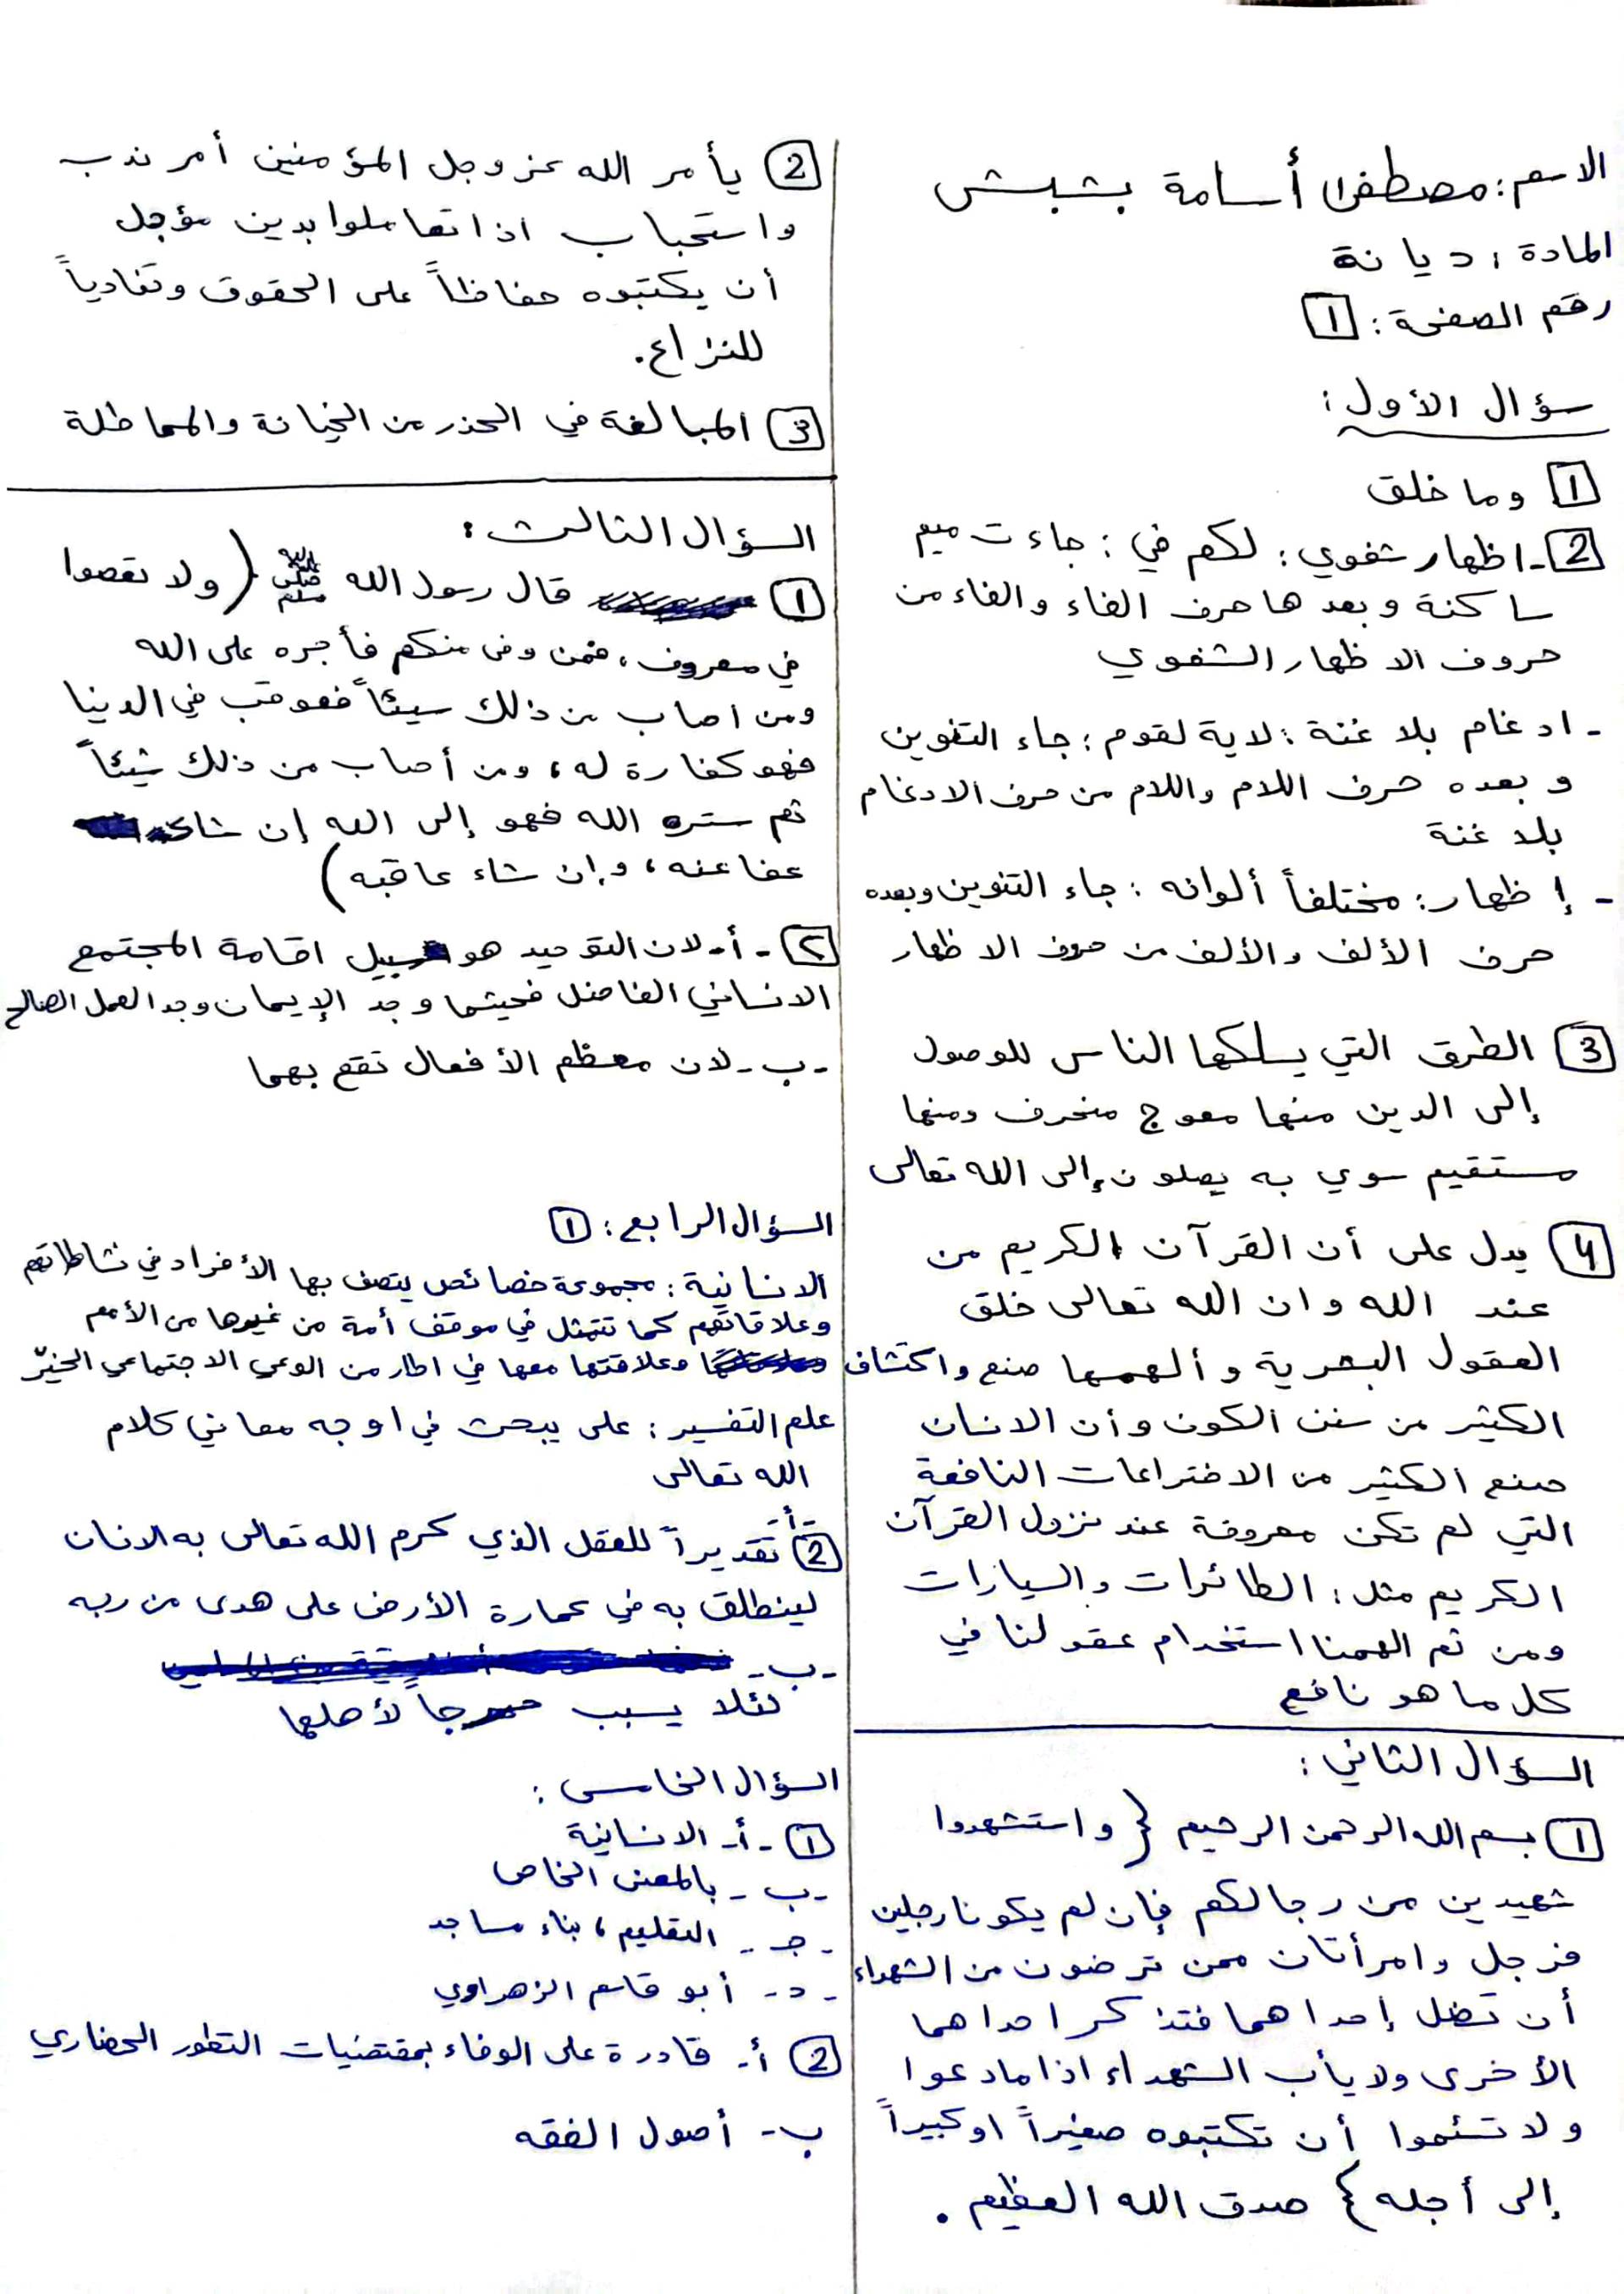 الاسم: مصطفى أسامة بشبش
المادة: ديانة
رقم الصفحة: 1
سؤال الأول:
1 وما خلق
2 - اظهار شفوي: لكم في: جاءت ميم
ساكنة وبعدها حرف الفاء والفاء من
حروف الاظهار الشفوي
- ادغام بلا غنة: لاية لقوم: جاء التنوين
وبعده حرف اللام واللام من حرف الادغام
بلا غنة
- إظهار: مختلفاً ألوانه: جاء التنوين وبعده
حرف الألف والألف من حروف الاظهار
3 الطرق التي يسلكها الناس للوصول
إلى الدين منها معوج منحرف ومنها
مستقيم سوي به يصلون إلى الله تعالى
4 يدل على أن القرآن الكريم من
عند الله وان الله تعالى خلق
العقول البشرية وألهمها صنع واكتشاف
الكثير من سنن الكون وأن الانسان
صنع الكثير من الاختراعات النافعة
التي لم تكن معروفة عند نزول القرآن
الكريم مثل: الطائرات والسيارات
ومن ثم الهمنا استخدام عقولنا في
كل ما هو نافع
السؤال الثاني:
1 بسم الله الرحمن الرحيم { واستشهدوا
شهيدين من رجالكم فإن لم يكونا رجلين
فرجل وامرأتان ممن ترضون من الشهداء
أن تضل إحداهما فتذكر احداهما
الأخرى ولا يأب الشهداء اذا ما دعوا
ولا تسئموا أن تكتبوه صغيراً او كبيراً
إلى أجله } صدق الله العظيم.
2 يأمر الله عز وجل المؤمنين أمر ندب
واستحباب اذا تعاملوا بدين مؤجل
أن يكتبوه حفاظاً على الحقوق وتفادياً
للنزاع.
3 المبالغة في الحذر من الخيانة والمماطلة
السؤال الثالث:
1 قال رسول الله ﷺ (ولا تعصوا
في معروف، فمن وفى منكم فأجره على الله
ومن اصاب من ذلك سيئاً فعوقب في الدنيا
فهو كفارة له، ومن أصاب من ذلك شيئاً
ثم ستره الله فهو إلى الله إن شاء
عفا عنه، وإن شاء عاقبه)
2 - أ - لان التوحيد هو سبيل اقامة المجتمع
الانساني الفاضل فحيثما وجد الإيمان وجد العمل الصالح
- ب - لان معظم الأفعال تقع بهما
السؤال الرابع: 1
الانسانية: مجموعة خصائص يتصف بها الأفراد في نشاطاتهم
وعلاقاتهم كما تتمثل في موقف أمة من غيرها من الأمم
وعلاقتها معها في اطار من الوعي الاجتماعي الخيّر
علم التفسير: على يبحث في اوجه معاني كلام
الله تعالى
2 - أ - تقديراً للعقل الذي كرم الله تعالى به الانسان
لينطلق به في عمارة الأرض على هدى من ربه
- ب -
لئلا يسبب حرجاً لأهلها
السؤال الخامس:
1 - أ - الانسانية
- ب - بالمعنى الخاص
- جـ - التعليم، بناء مساجد
- د - أبو قاسم الزهراوي
2 أ - قادرة على الوفاء بمقتضيات التطور الحضاري
ب - أصول الفقه